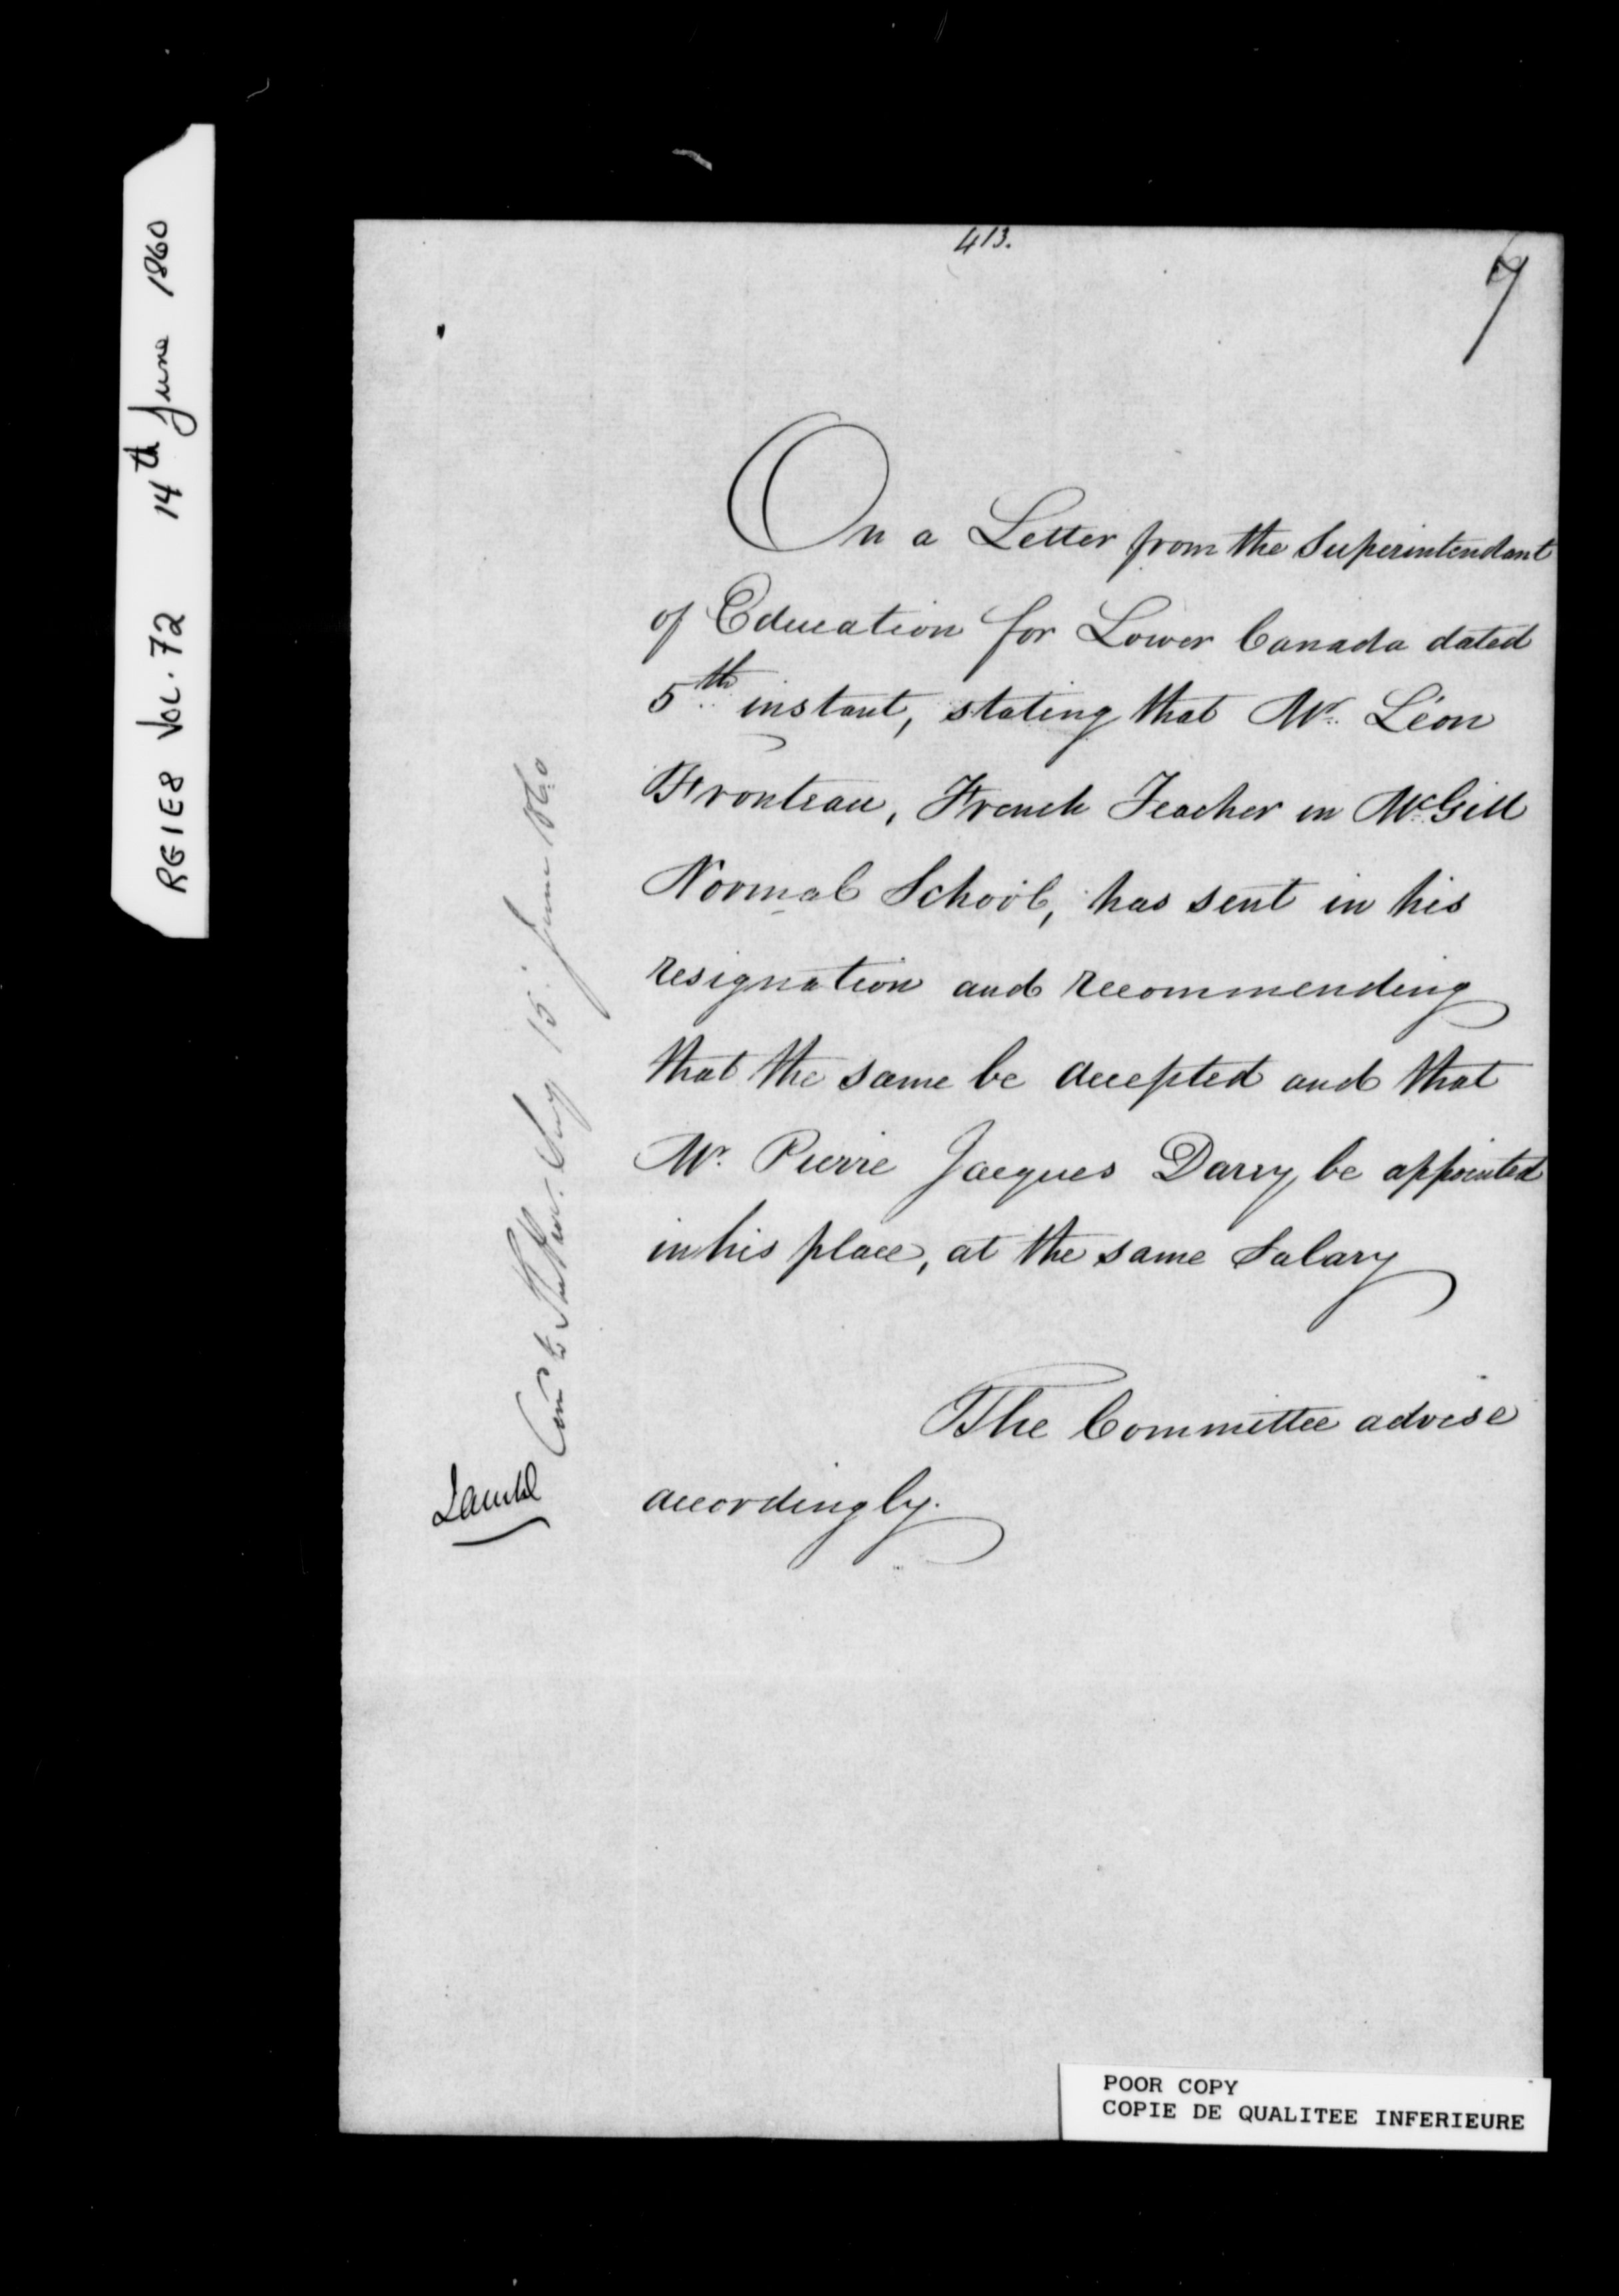 RG1E8 VOL. 72 14th June 1860
413.
On a Letter from the Superintendant
of Education for Lower Canada dated
5th instant, stating that Mr. Léon
Fronteau, French Teacher in McGill
Normal School, has sent in his
resignation and recommending
that the same be accepted and that
Mr. Pierre Jacques Darry be appointed
in his place, at the same Salary
The Committee advise
accordingly.
Comd to 15. June 1860
POOR COPY
COPIE DE QUALITEE INFERIEURE